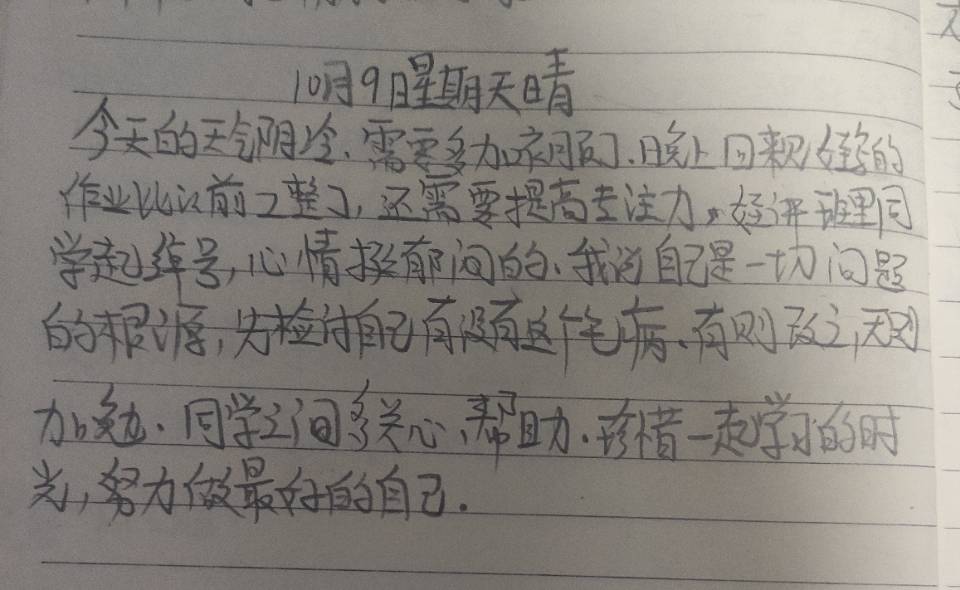 10月9日星期天晴
今天的天气阴冷、需要多加衣服了.晚上回来观婷的
作业比以前工整了,还需要提高专注力。好评班里同
学起绰号,心情挺郁闷的、我说自己是一切问题
的根源,先检讨自己有没有这个毛病、有则改之,无则
加勉.同学之间多关心、帮助.珍惜一起学习的时
光,努力做最好的自己.